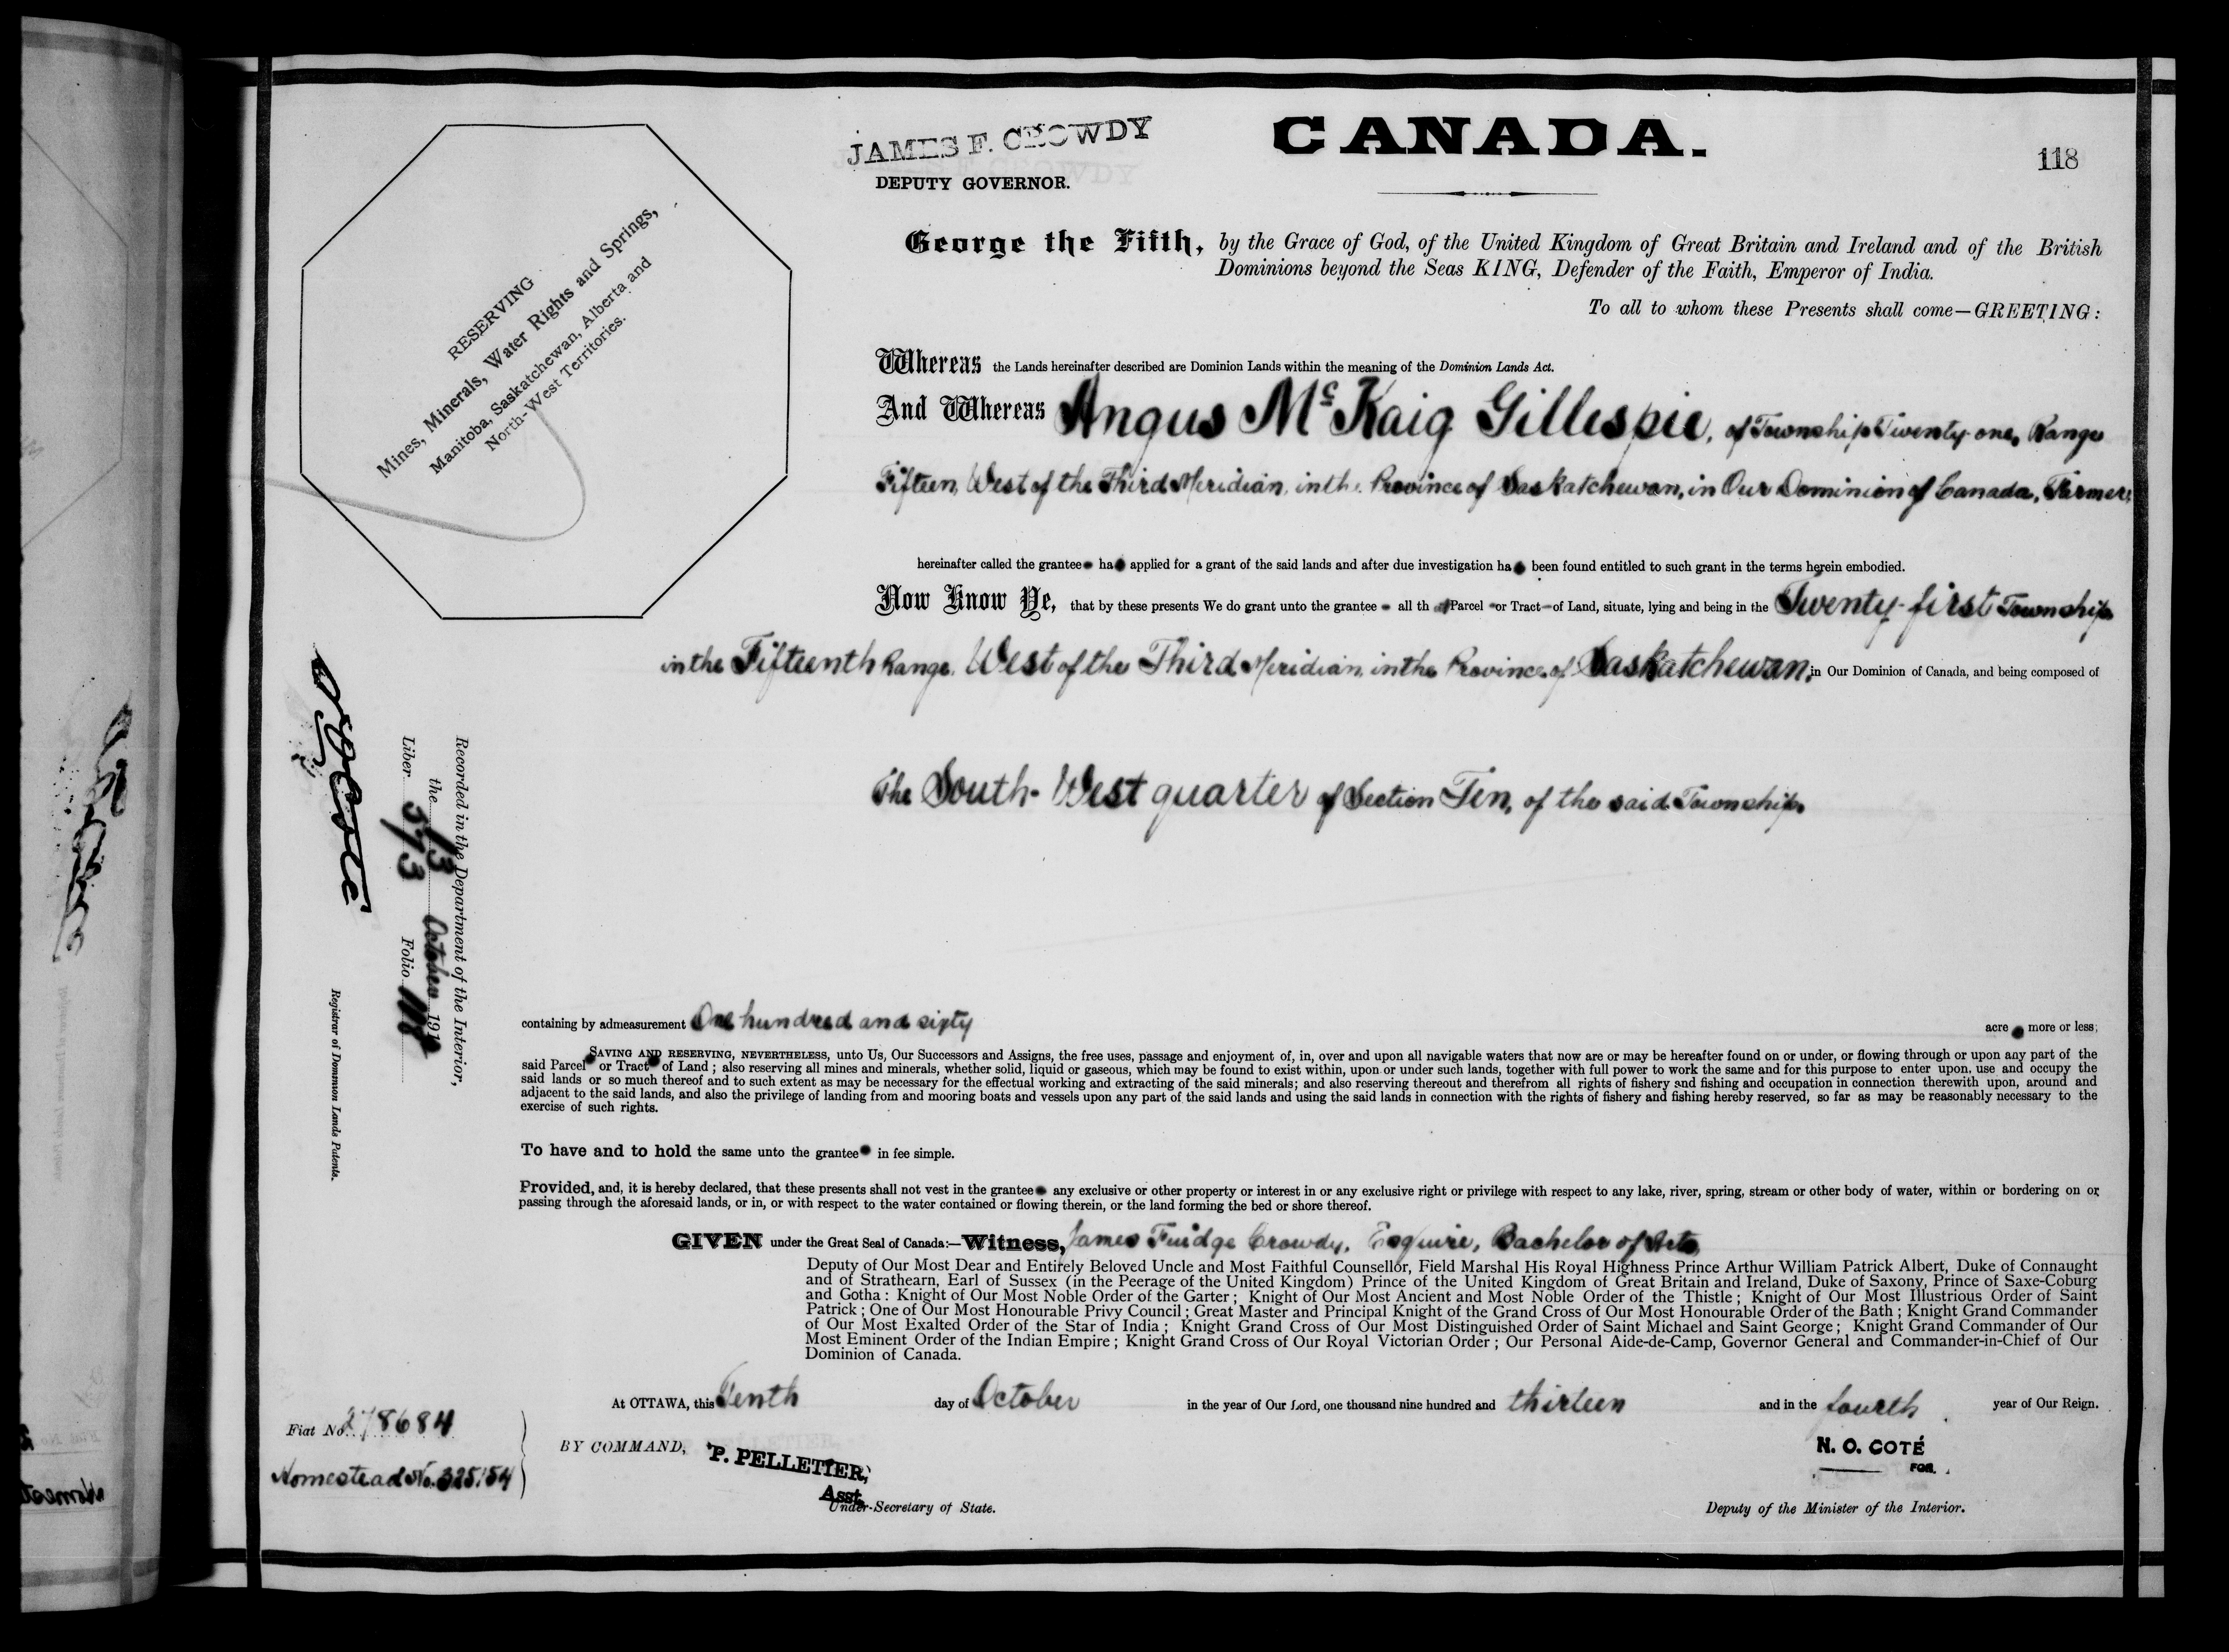 JAMES F. CROWDY
DEPUTY GOVERNOR.
CANADA.
118
RESERVING
Mines, Minerals, Water Rights and Springs,
Manitoba, Saskatchewan, Alberta and
North-West Territories.
George the Fifth, by the Grace of God, of the United Kingdom of Great Britain and Ireland and of the British
Dominions beyond the Seas KING, Defender of the Faith, Emperor of India.
To all to whom these Presents shall come—GREETING:
Whereas the Lands hereinafter described are Dominion Lands within the meaning of the Dominion Lands Act.
And Whereas Angus McKaig Gillespie, of Township Twenty-one, Range
Fifteen, West of the Third Meridian, in the Province of Saskatchewan, in Our Dominion of Canada, Farmer,
hereinafter called the grantee ha applied for a grant of the said lands and after due investigation ha been found entitled to such grant in the terms herein embodied.
Now Know Ye, that by these presents We do grant unto the grantee all th at Parcel or Tract of Land, situate, lying and being in the Twenty-first Township
in the Fifteenth Range, West of the Third Meridian, in the Province of Saskatchewan, in Our Dominion of Canada, and being composed of
The South-West quarter of Section Ten, of the said Township,
containing by admeasurement One hundred and sixty acre more or less;
SAVING AND RESERVING, NEVERTHELESS, unto Us, Our Successors and Assigns, the free uses, passage and enjoyment of, in, over and upon all navigable waters that now are or may be hereafter found on or under, or flowing through or upon any part of the
said Parcel or Tract of Land; also reserving all mines and minerals, whether solid, liquid or gaseous, which may be found to exist within, upon or under such lands, together with full power to work the same and for this purpose to enter upon, use and occupy the
said lands or so much thereof and to such extent as may be necessary for the effectual working and extracting of the said minerals; and also reserving thereout and therefrom all rights of fishery and fishing and occupation in connection therewith upon, around and
adjacent to the said lands, and also the privilege of landing from and mooring boats and vessels upon any part of the said lands and using the said lands in connection with the rights of fishery and fishing hereby reserved, so far as may be reasonably necessary to the
exercise of such rights.
To have and to hold the same unto the grantee in fee simple.
Provided, and, it is hereby declared, that these presents shall not vest in the grantee any exclusive or other property or interest in or any exclusive right or privilege with respect to any lake, river, spring, stream or other body of water, within or bordering on or
passing through the aforesaid lands, or in, or with respect to the water contained or flowing therein, or the land forming the bed or shore thereof.
GIVEN under the Great Seal of Canada:—Witness, James Fuidge Crowdy, Esquire, Bachelor of Arts,
Deputy of Our Most Dear and Entirely Beloved Uncle and Most Faithful Counsellor, Field Marshal His Royal Highness Prince Arthur William Patrick Albert, Duke of Connaught
and of Strathearn, Earl of Sussex (in the Peerage of the United Kingdom) Prince of the United Kingdom of Great Britain and Ireland, Duke of Saxony, Prince of Saxe-Coburg
and Gotha: Knight of Our Most Noble Order of the Garter; Knight of Our Most Ancient and Most Noble Order of the Thistle; Knight of Our Most Illustrious Order of Saint
Patrick; One of Our Most Honourable Privy Council; Great Master and Principal Knight of the Grand Cross of Our Most Honourable Order of the Bath; Knight Grand Commander
of Our Most Exalted Order of the Star of India; Knight Grand Cross of Our Most Distinguished Order of Saint Michael and Saint George; Knight Grand Commander of Our
Most Eminent Order of the Indian Empire; Knight Grand Cross of Our Royal Victorian Order; Our Personal Aide-de-Camp, Governor General and Commander-in-Chief of Our
Dominion of Canada.
At OTTAWA, this Tenth day of October in the year of Our Lord, one thousand nine hundred and thirteen and in the fourth year of Our Reign.
Fiat No. 278684
Homestead No. 325154
BY COMMAND, P. PELLETIER,
Asst.
Under-Secretary of State.
N. O. COTÉ
FOR.
Deputy of the Minister of the Interior.
Recorded in the Department of the Interior,
the 13 October 191
Liber 573 Folio 118
N O Coté
Registrar of Dominion Lands Patents.